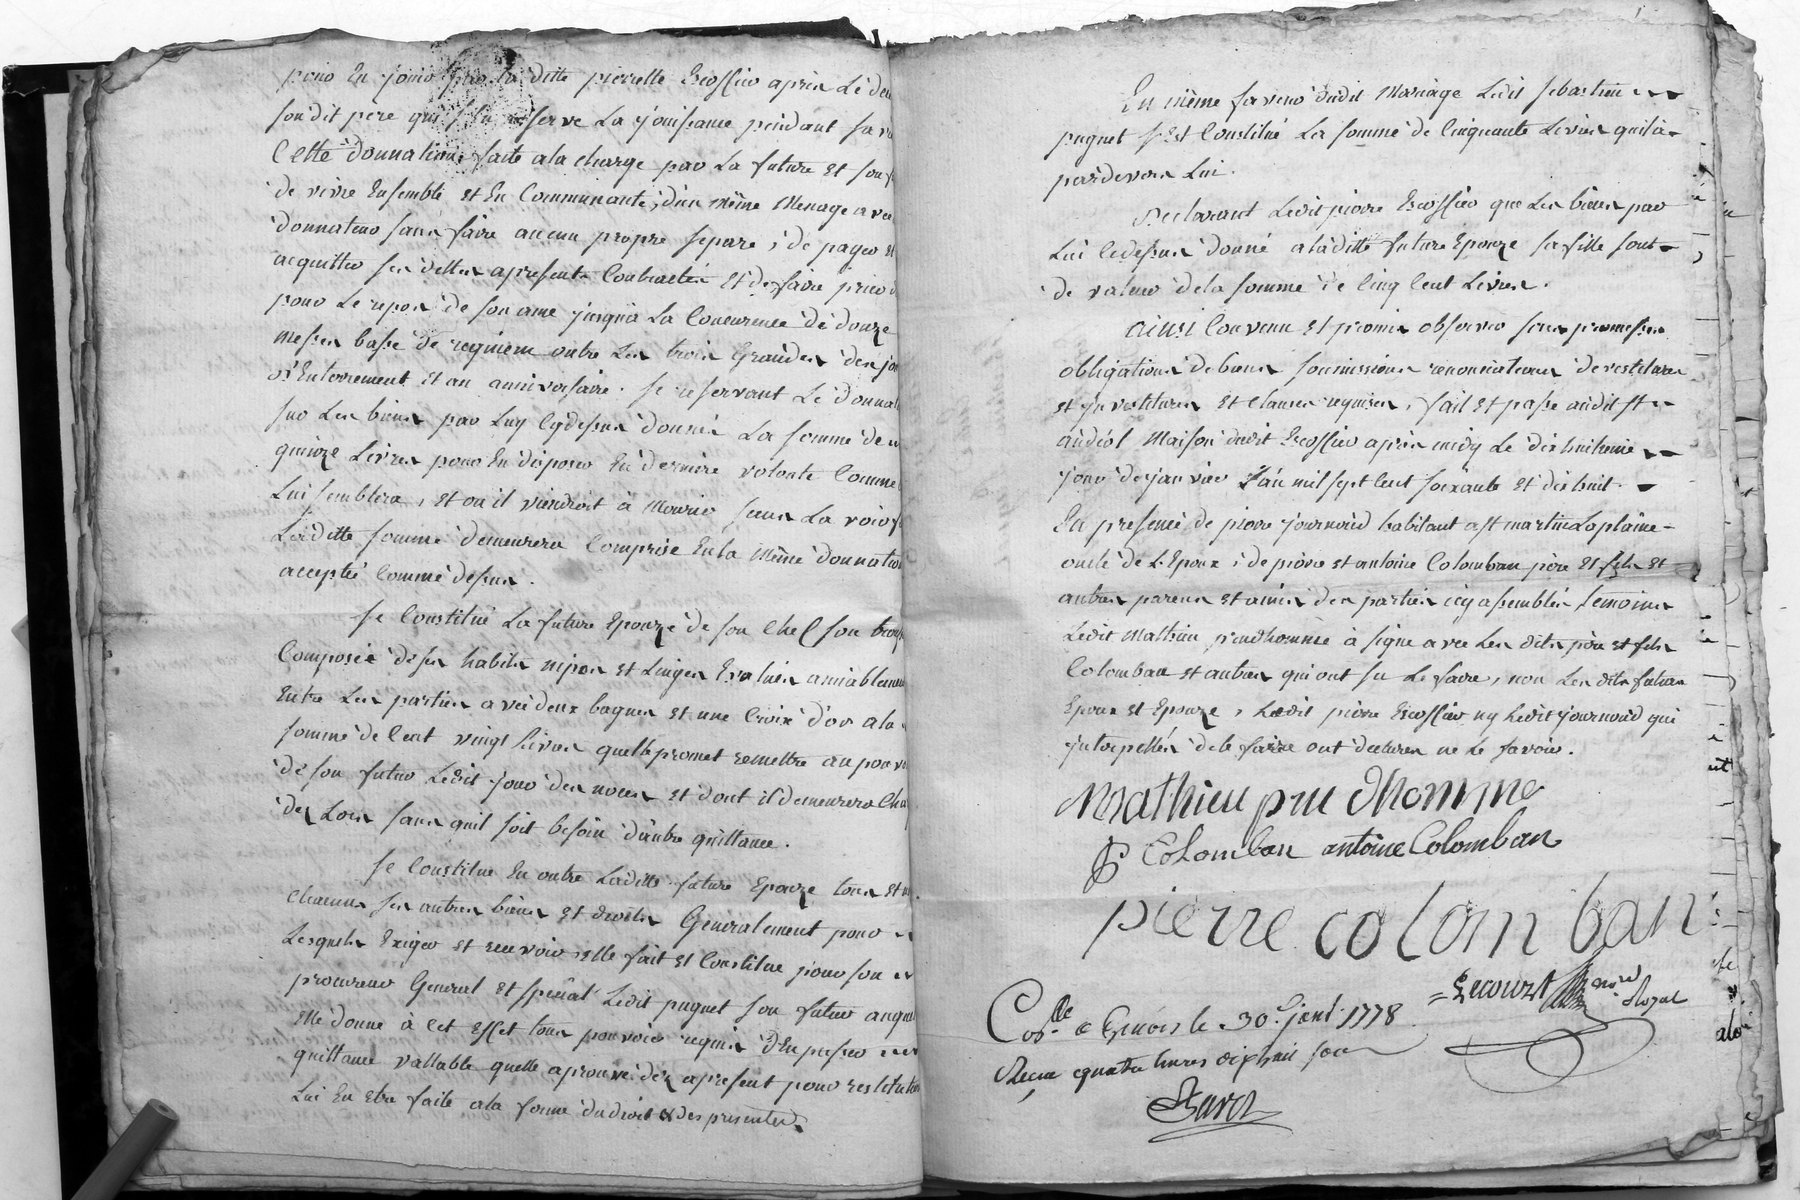 pour En jouir par la ditte pierrette Escoffier apres Le de
son dit pere qui s'En reserve La jouissance pendant sa v
Cette donnation faite ala charge par La future Et son
de vivre Ensemble et En Communauté, d'un même Menage avec
donnateur sans faire aucun propre separe, de payer Et
acquitter ses dettes apresent Contractés Et de faire prier
pour Le repos de son ame jusqu'a La Concurence de douze
messes basse de requiem outre Les trois Grandes des jou
d'Enterrement Et au anniversaire. Se reservant Le donnat
sur Les biens par Luy Cydessus donné La somme de
quinze Livres pour En disposer En derniere volonté Comme
Lui semblera, et ou il viendroit à Mourir sans La voir
Laditte somme demeurera Comprise En la même donnation
accepté Comme dessus.
Se Constitue La future Epouze de son Chef son trous
Composé de ses habits nipes et Linges Evalués amiablement
Entre Les parties avec deux bagues et une Croix d'or ala
somme de Cent vingt Livres quelle promet remettre au pouv
de son futur Ledit jour des noces Et dont il demeurera Cha
des Lors sans quil soit besoin d'autre quittance.
Se Constitue En outre Laditte future Epouze tous et
chacuns ses autres biens et droits Generalement pour
Lesquels Exiger et recevoir elle fait Et Constitue pour son
procureur General Et special Ledit puguet son futur auquel
Elle donne à Cet Effet tous pouvoir requis d'En passer
quittance vallable quelle aprouve dez apresent pour restitution
Lui En Etre faite ala forme du droit & des presentes.
En même faveur dudit Mariage Ledit sebastien
puguet s'Est Constitué La somme de Cinquante Livres quil a
pardevers Lui.
Declarant Ledit pierre Escoffier que Les biens par
Lui Cedessus donné ala ditte future Epouze sa fille sont
de valeur de la somme de Cinq Cent Livres.
ainsi Convenu et promis observer sous promesses
obligations de biens soumissions renonciations de restitures
et jnvestitures et Clauses requises, fait Et passé audit St
andéol Maison dudit Escoffier après midy Le dixhuitieme
jour de janvier L'an mil sept Cent soixante et dixhuit.
En presence de pierre journoud habitant a St martin Laplaine
oncle de L'Epoux, de pierre et antoine Colomban pere Et fils Et
autres parens et amis des parties icy assemblés temoins
Ledit Mathieu prudhomme à signe avec Les dits pere et fils
Colomban et autres qui ont su Le faire, non Les dits futurs
Epoux Et Epouze, Ledit pierre Escoffier ny Ledit journoud qui
jnterpellés de le faire ont declarer ne Le savoir.
Mathieu pru dhomme
P Colomban antoine Colomban
pierre colomban
Lecourt nore Royal
Con.lle a Grivors le 30.e janv.r 1778
Recu quatre livres dixhuit sou